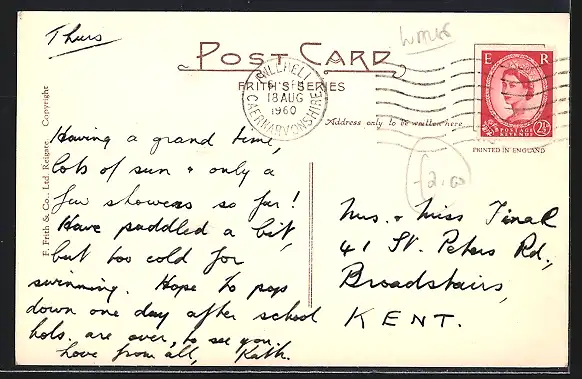 Thurs
WALES
POST CARD
FRITH'S SERIES
PWLLHELI
18 AUG
1960
CAERNARVONSHIRE
E R
POSTAGE
2½
Address only to be written here
PRINTED IN ENGLAND
F. Frith & Co., Ltd. Reigate. Copyright
£2.00
Having a grand time,
lots of sun & only a
few showers so far!
Have paddled a bit,
but too cold for
swimming. Hope to pop
down one day after school
hols. are over, to see you.
Love from all, Kath.
Mrs. & Miss
41 St. Peters Rd.,
Broadstairs,
KENT.